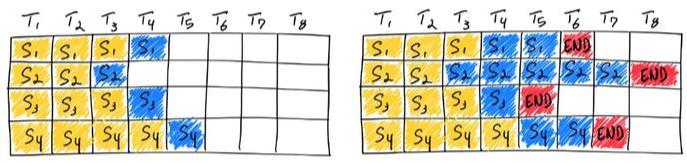 T₁ T₂ T₃ T₄ T₅ T₆ T₇ T₈
S₁ S₁ S₁ S₁
S₂ S₂ S₂
S₃ S₃ S₃ S₃
S₄ S₄ S₄ S₄ S₄
T₁ T₂ T₃ T₄ T₅ T₆ T₇ T₈
S₁ S₁ S₁ S₁ S₁ END
S₂ S₂ S₂ S₂ S₂ S₂ S₂ END
S₃ S₃ S₃ S₃ END
S₄ S₄ S₄ S₄ S₄ S₄ END